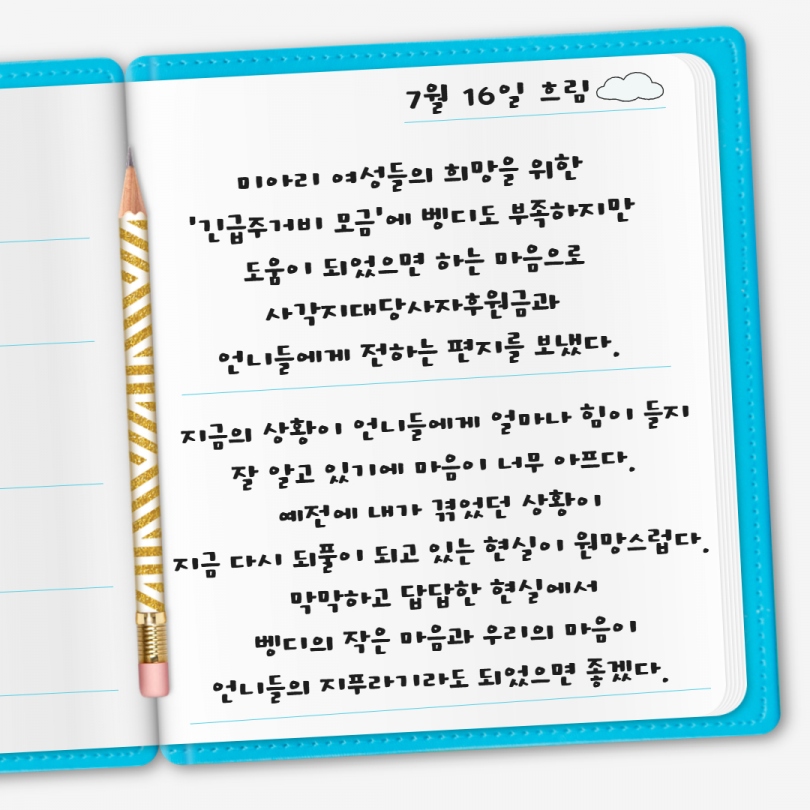 7월 16일 흐림
미아리 여성들의 희망을 위한
'긴급주거비 모금'에 벵디도 부족하지만
도움이 되었으면 하는 마음으로
사각지대당사자후원금과
언니들에게 전하는 편지를 보냈다.
지금의 상황이 언니들에게 얼마나 힘이 들지
잘 알고 있기에 마음이 너무 아프다.
예전에 내가 겪었던 상황이
지금 다시 되풀이 되고 있는 현실이 원망스럽다.
막막하고 답답한 현실에서
벵디의 작은 마음과 우리의 마음이
언니들의 지푸라기라도 되었으면 좋겠다.